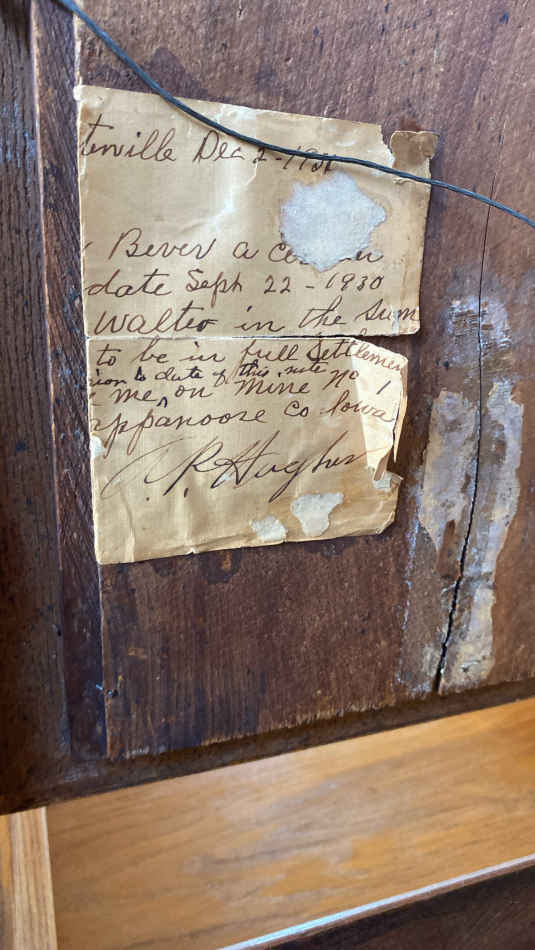 terville Dec 2-1930
Bever a
date Sept 22-1930
Walter in the Sum
to be in full Settlemen
rion to date of this note
me, on Mine No 1
appanoose Co Iowa
C. R. Hughes